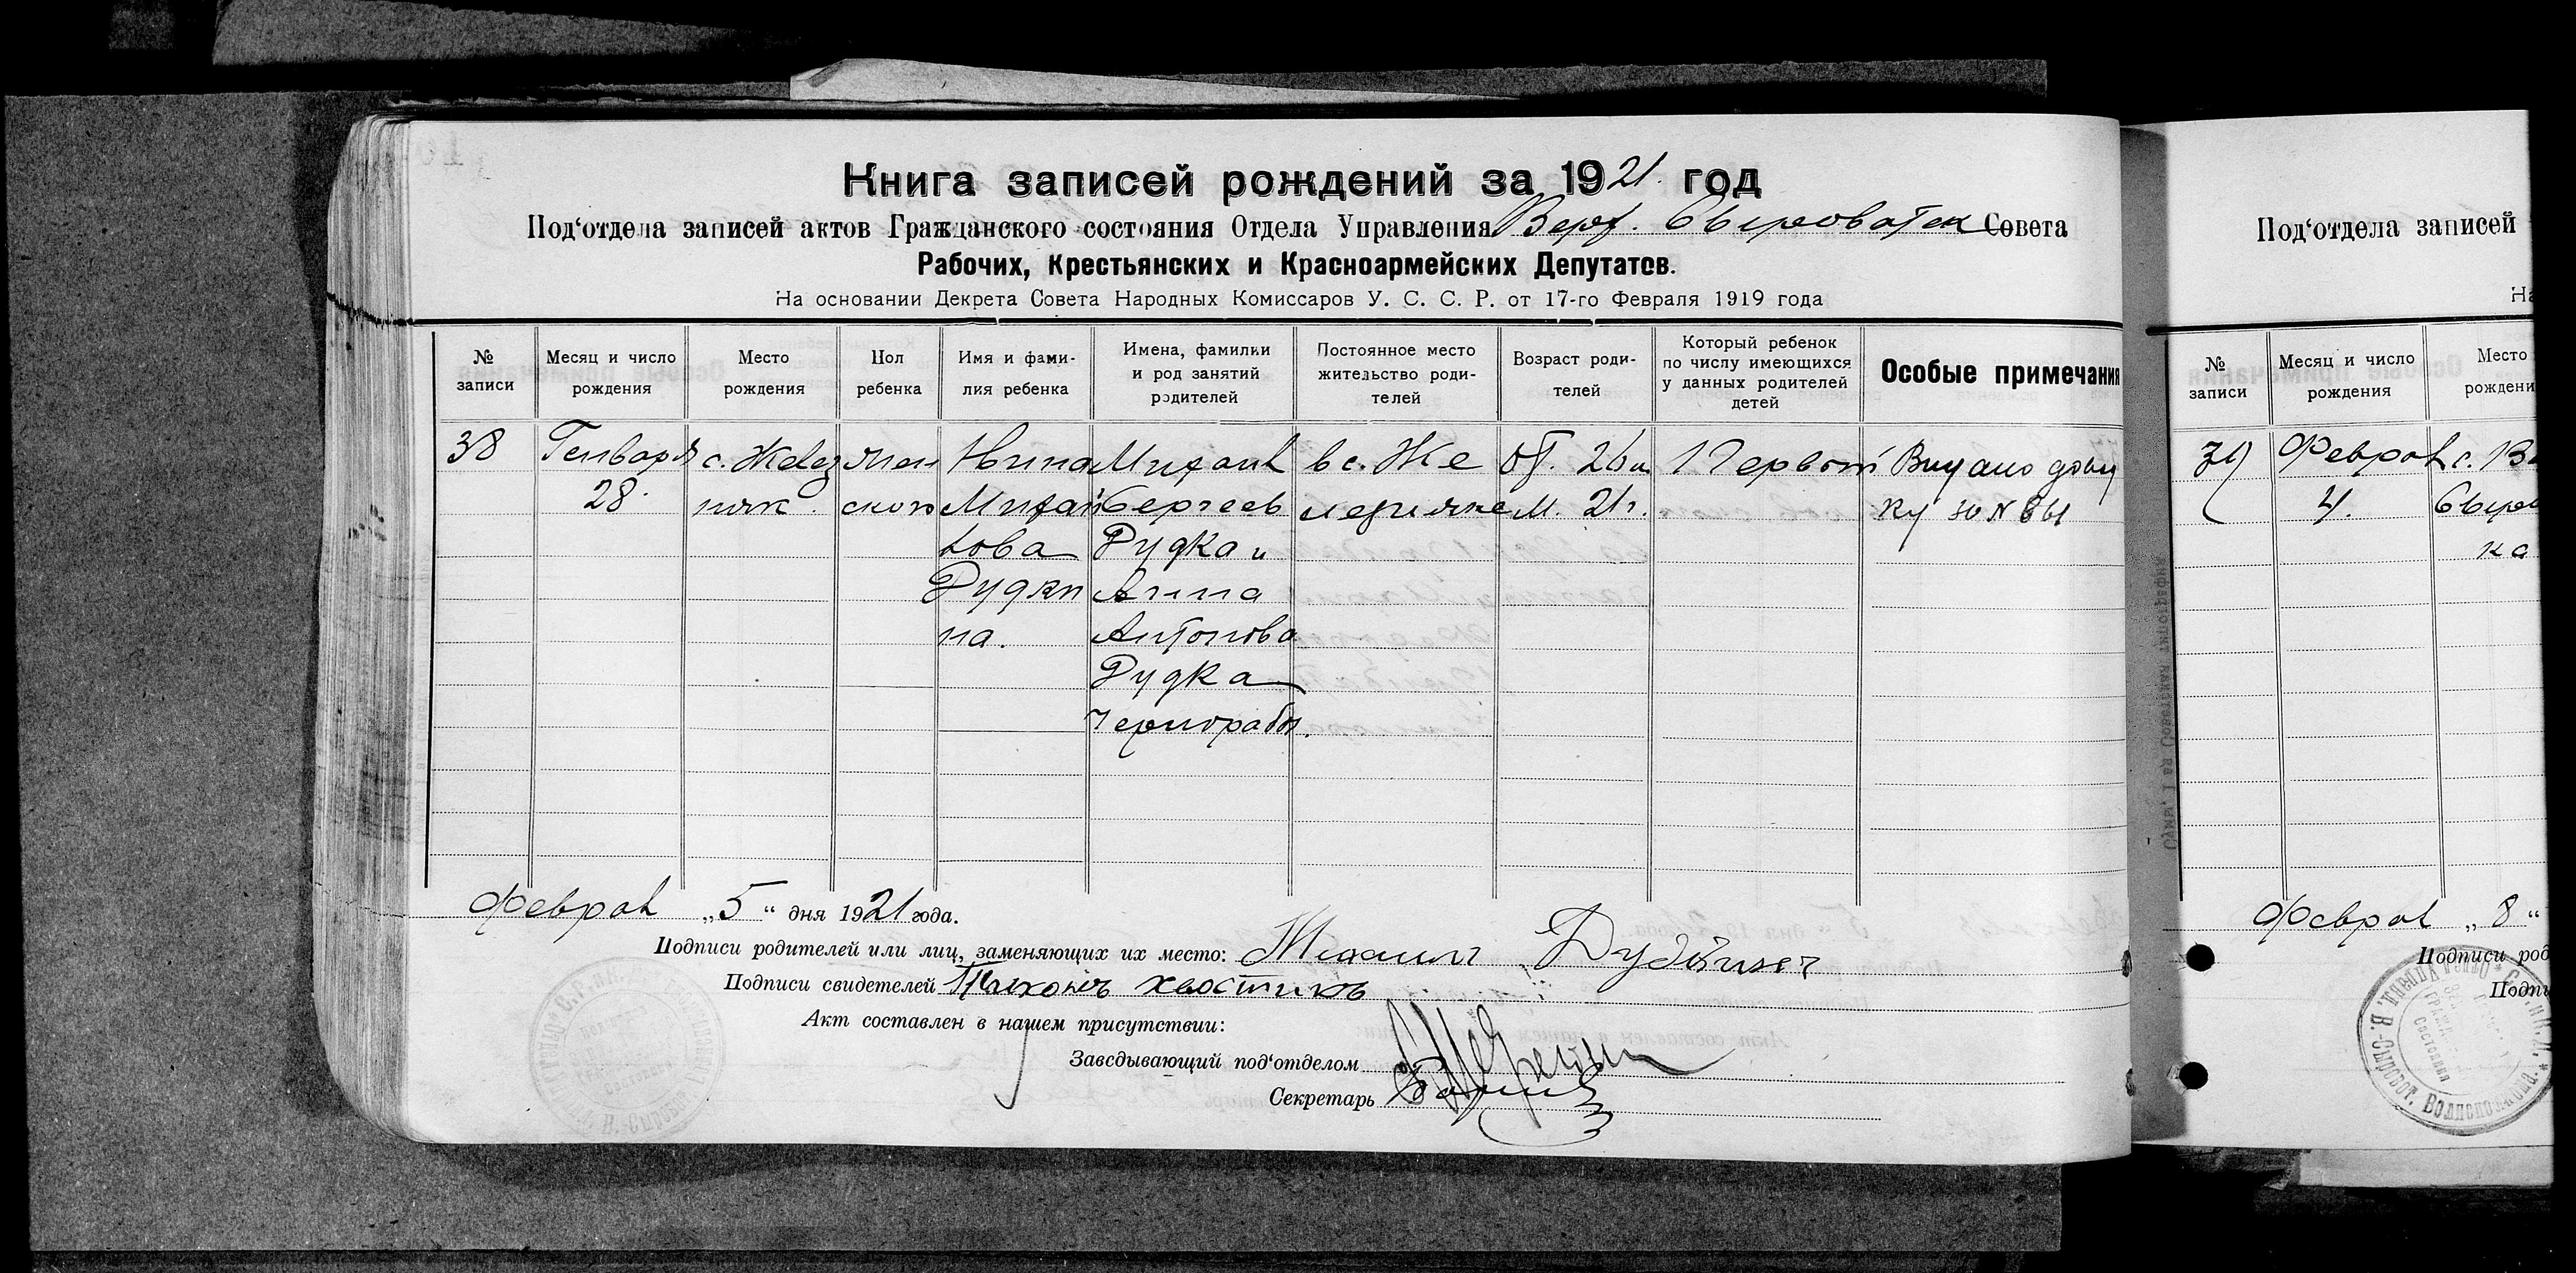 Книга записей рождений за 1921 год
Под‘отдела записей актов Гражданского состояния Отдела Управления Верх. Сыроватск Совета
Рабочих, Крестьянских и Красноармейских Депутатов.
На основании Декрета Совета Народных Комиссаров У. С. С. Р. от 17-го Февраля 1919 года
№ записи
Месяц и число рождения
Место рождения
Пол ребенка
Имя и фами-
лия ребенка
Имена, фамилии
и род занятий
родителей
Постоянное место
жительство роди-
телей
Возраст роди-
телей
Который ребенок
по числу имеющихся
у данных родителей
детей
Особые примечания
38
Генваря
28
с. Желез
няк
жен
ского
Нина
Михай
лова
Рудки
на.
Михаил
Сергеев
Рудка и
Анна
Антонова
Рудка
чернораб.
в с. Же
лезняке
От. 26 л
М. 21 г.
Первый
Выдано
ку за №
Феврал „5“ дня 1921 года.
Подписи родителей или лиц, заменяющих их место: Михаил
Подписи свидетелей Тихонъ Хвостикъ
Акт составлен в нашем присутствии:
Заведывающий под‘отделом
Секретарь
Под‘отдела записей
На
№ записи
Месяц и число рождения
Место
рождени
39
Феврал
4.
с. В
Сыро
ка
Феврал „8“
Подписи род
Подпи